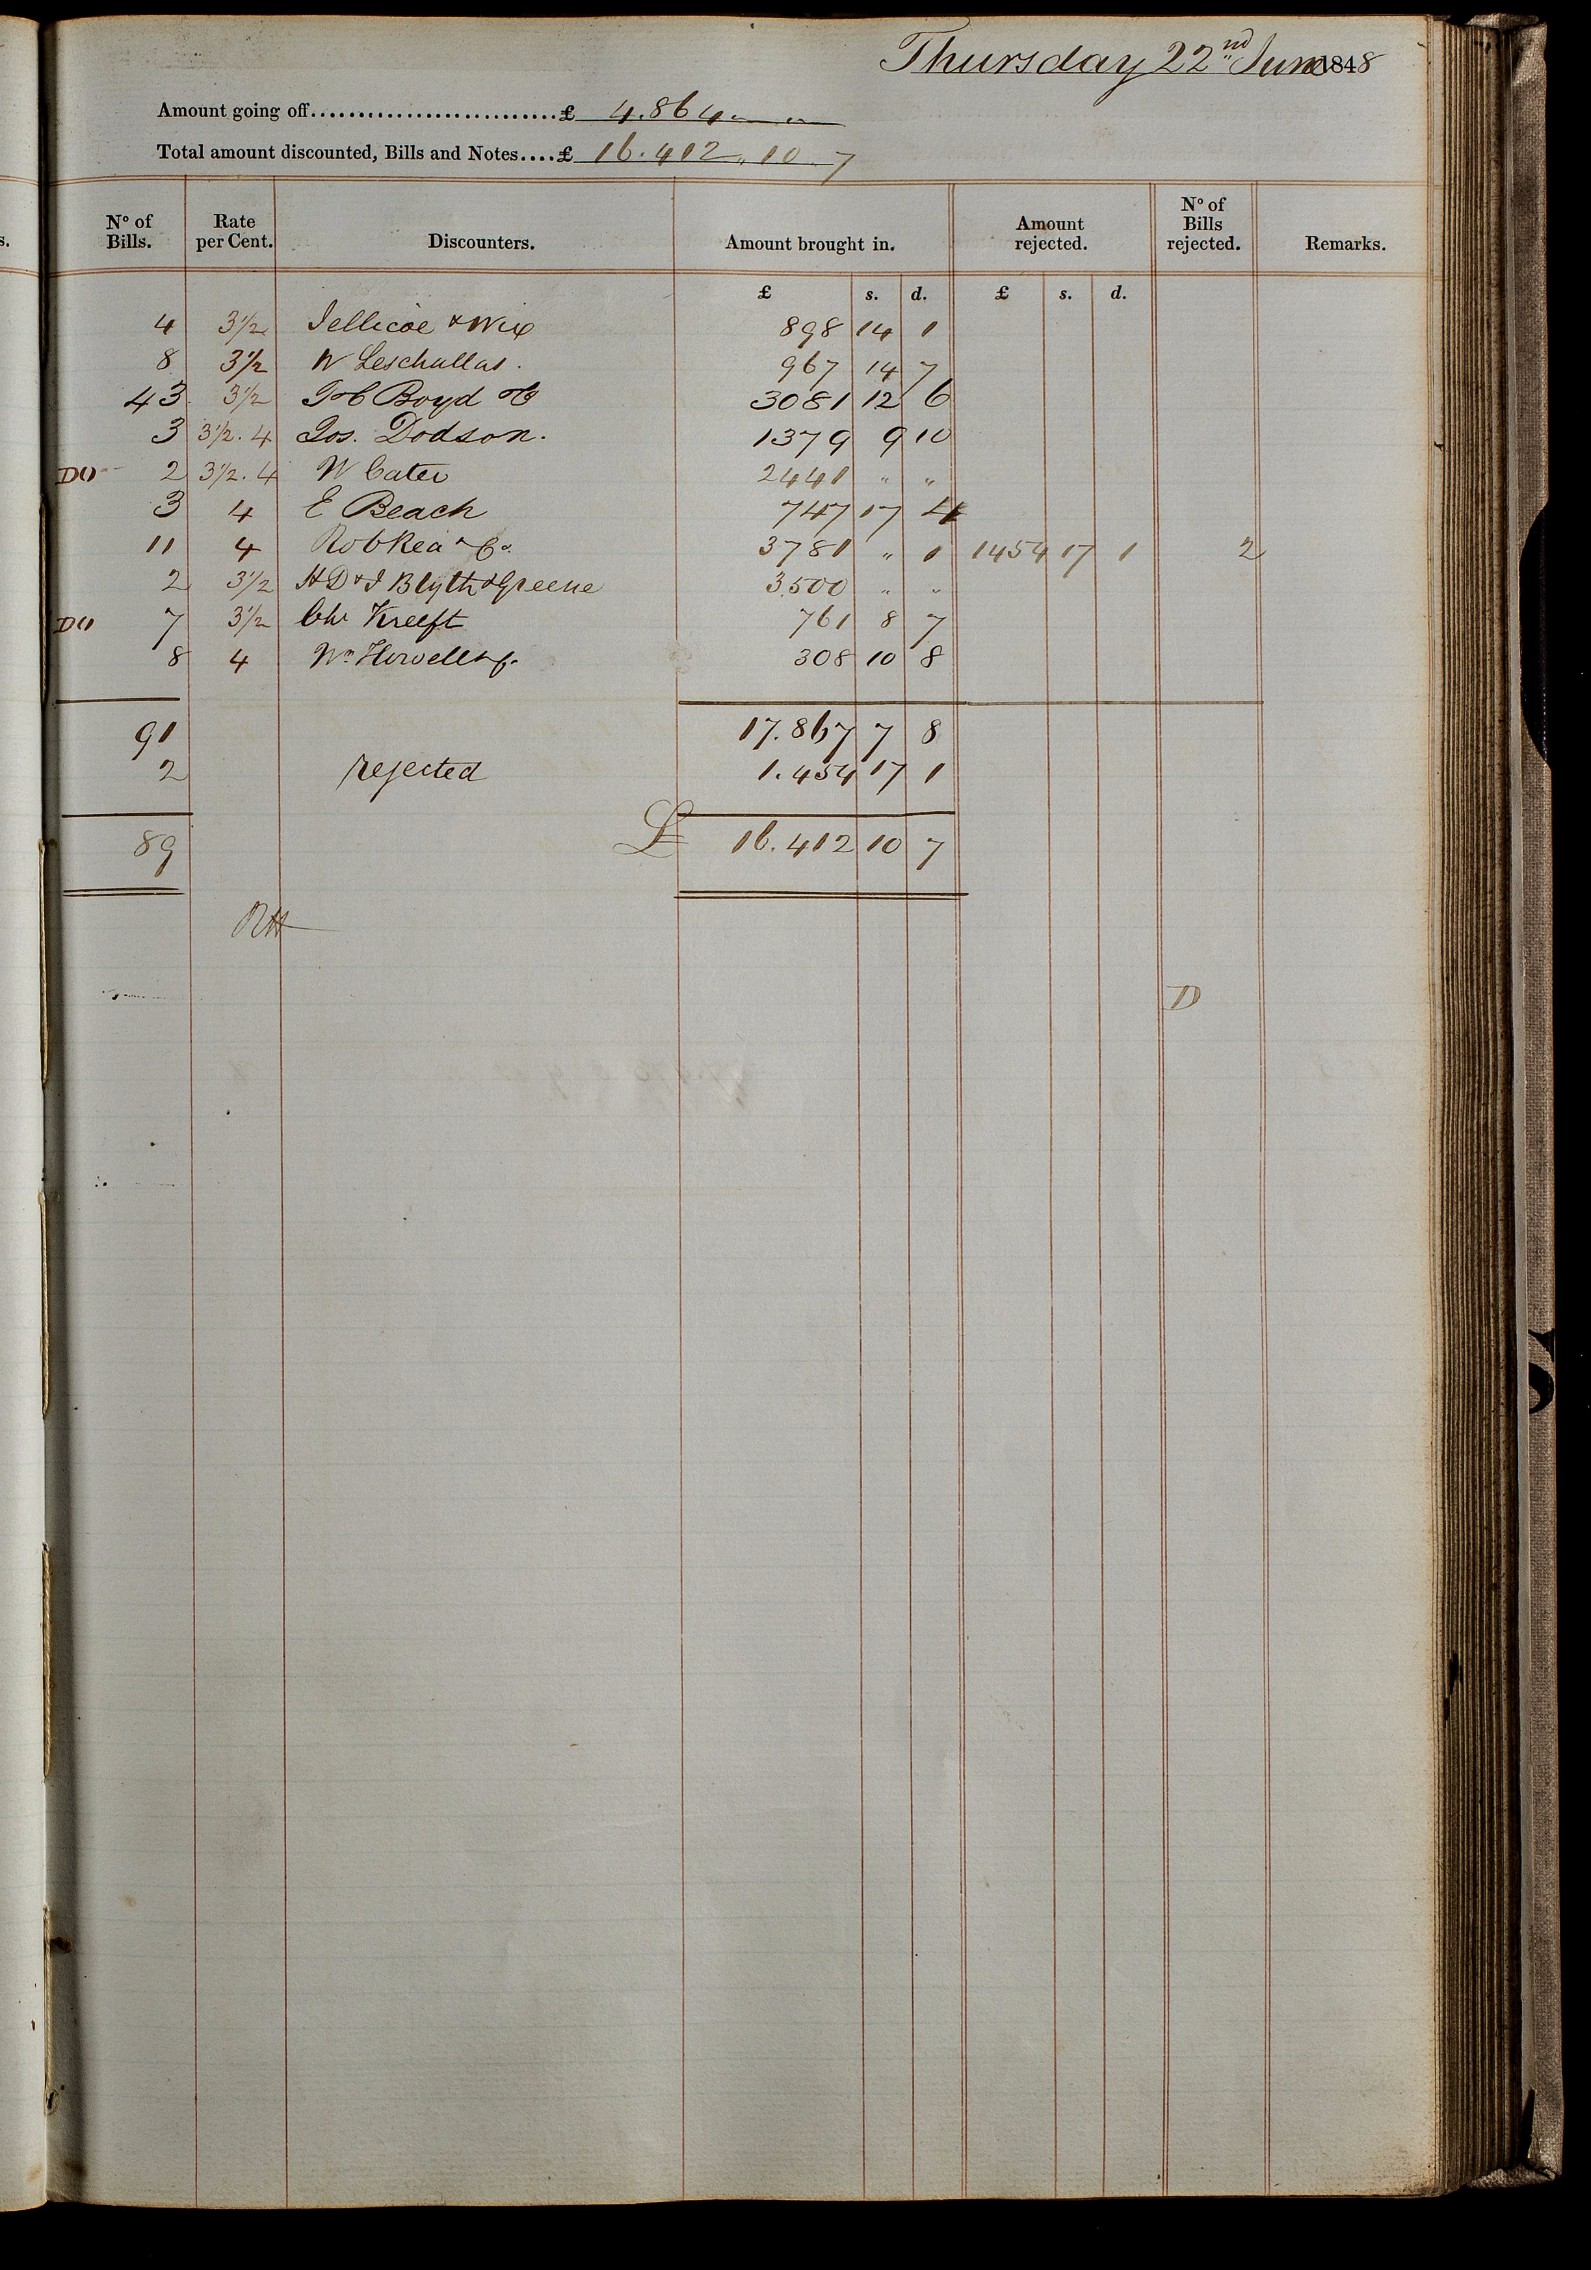 Thursday 22nd June 1848
Amount going off..........................£ 4.864 " "
Total amount discounted, Bills and Notes....£ 16.412 " 10 . 7
No of Bills. Rate per Cent. Discounters. Amount brought in. Amount rejected. No of Bills rejected. Remarks.
£ s. d. £ s. d.
4 3½ Jellicoe & Wix 898 14 1
8 3½ W Leschallas. 967 14 7
43 3½ Boyd & Co 3081 12 6
3 3½.4 Jos. Dodson. 1379 9 10
DO 2 3½.4 W Cater 2441 " "
3 4 E Beach 747 17 4
11 4 Rob Rea & Co. 3781 " 1 1454 17 1 2
2 3½ H D & J Blyth & Greene 3.500 " "
DO 7 3½ Chs Kreeft 761 8 7
8 4 Wm Howell & Co. 308 10 8
91 17.867 7 8
2 rejected 1.454 17 1
89 £ 16.412 10 7
RH
D